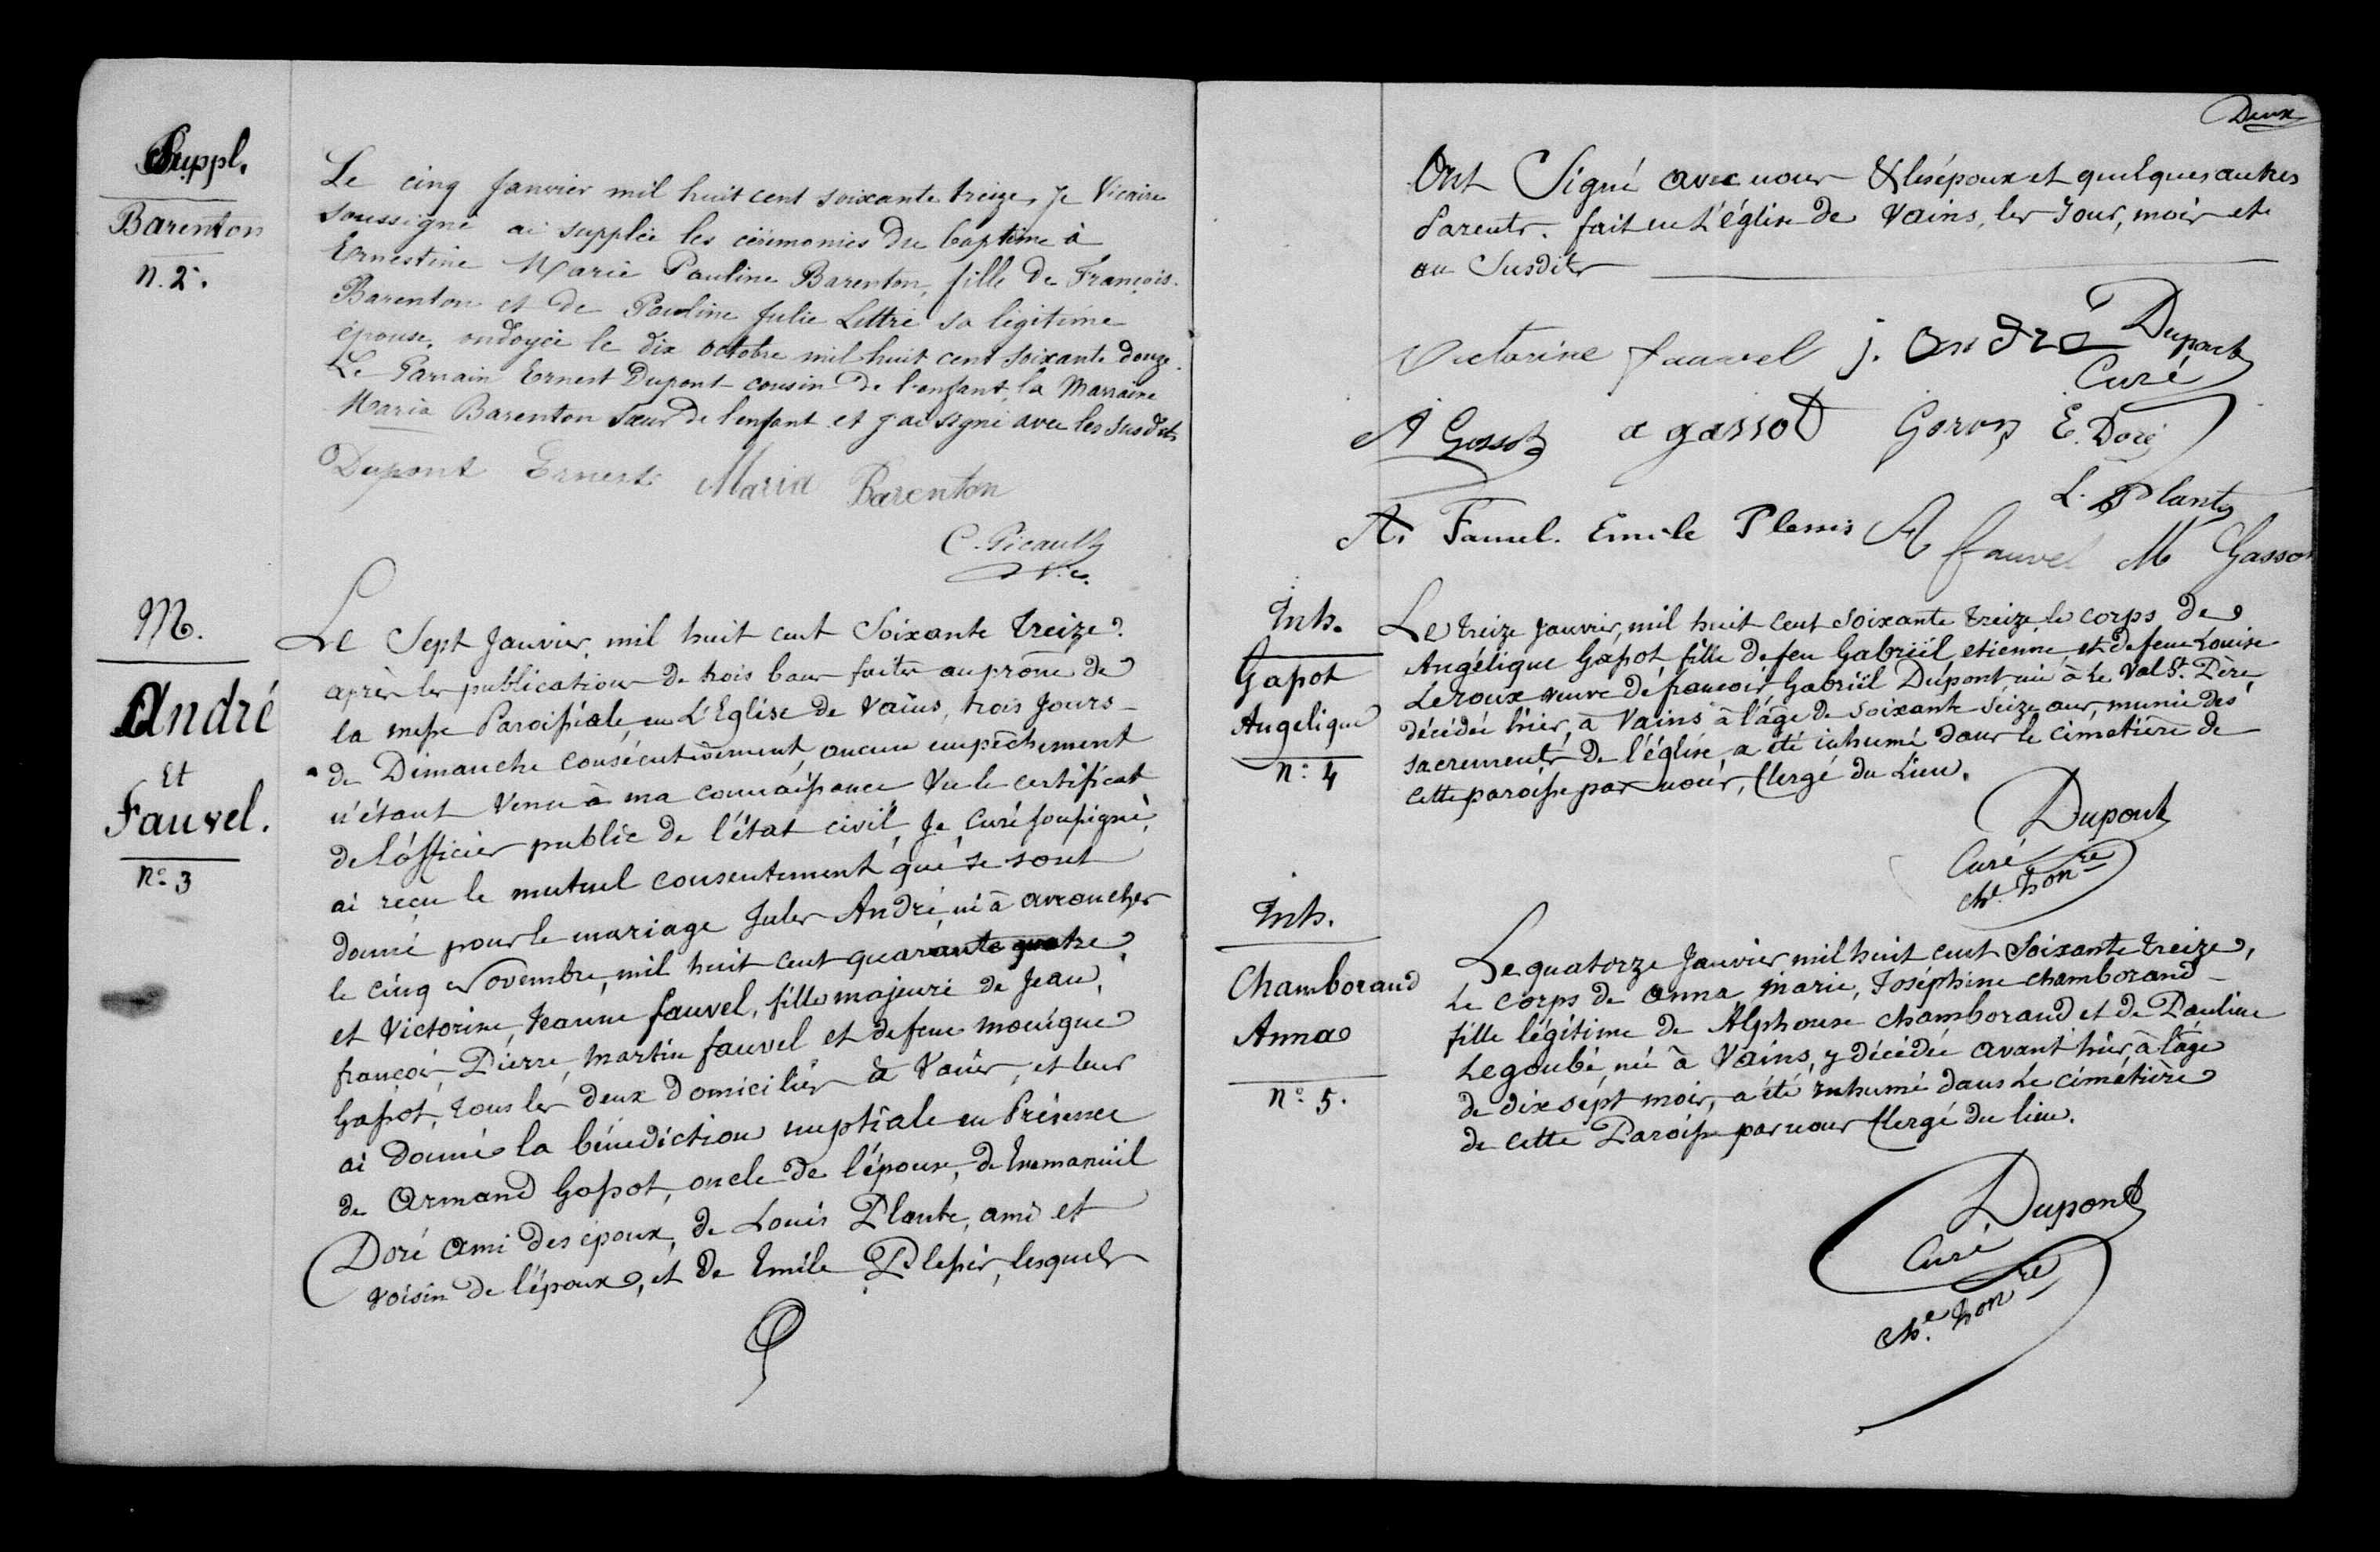 Suppl.
Barenton
N. 2.
Le cinq Janvier mil huit cent soixante treize, Je Vicaire
soussigné ai supplée les cérémonies du baptême à
Ernestine Marie Pauline Barenton, fille de François
Barenton et de Pauline Julie Lettré sa légitime
épouse, ondoyée le dix octobre mil huit cent soixante douze.
Le Parrain Ernest Dupont cousin de l'enfant, la Marraine
Maria Barenton sœur de l'enfant et j'ai signé avec les susdits
Dupont Ernest Maria Barenton
C. Picault
Vic.
M.
André
Et
Fauvel.
N° 3
Le Sept Janvier, mil huit cent Soixante treize,
après les publications de trois bans faites au prône de
la messe Paroissiale, en L'Eglise de Vains, trois Jours
de Dimanche consécutivement, aucun empêchement
n'étant Venu à ma connaissance Vu le certificat
de L'officier public de l'état civil, Je, Curé soussigné,
ai reçu le mutuel consentement que se sont
donné pour le mariage Jules André, né à avranches
le cinq Novembre, mil huit cent quarante quatre,
et Victorine, Jeanne fauvel, fille majeure de Jean,
françois, Pierre, Martin fauvel et de feue monique
Gassot, tous les deux domiciliés à Vains, et leur
ai donné la bénédiction nuptiale en Présence
de Armand Gassot, oncle de l'épouse, de Emmanuël
Doré ami des époux, de Louis Plante, ami et
voisin de l'époux, et de Emile Plessis, lesquels
Deux
Ont Signé avec nous & les époux et quelques autres
Parents. fait en L'église de Vains, les Jour, mois et
an Susdits
Victorine fauvel j. André Dupont
Curé
A Gassot a gassot Goron E. Doré
L. Plante
A. Fauvel. Emile Plessis A fauvel M Gassot
Inh.
Gassot
Angelique
N° 4
Le treize Janvier, mil huit cent soixante treize, le corps de
Angélique Gassot, fille de feu Gabriël etienne et de feue Louise
Leroux veuve de francois Gabriël Dupont, né à Le Val St. Père,
décédée hier, à Vains à l'âge de soixante seize ans, munie des
sacrements de l'église, a été inhumé dans le cimetière de
cette paroisse par nous, Clergé du Lieu.
Dupont
Curé
ch. honre
Inh.
Chamborand
Anna
N° 5.
Le quatorze Janvier mil huit cent Soixante treize,
Le corps de Anna, Marie, Joséphine chamborand
fille légitime de Alphonse chamborand et de Pauline
Legoubé, né à Vains, y décédée avant hier, à l'âge
de dix sept mois, a été inhumé dans Le cimétière
de cette Paroisse par nous Clergé du lieu.
Dupont
Curé
che. honre